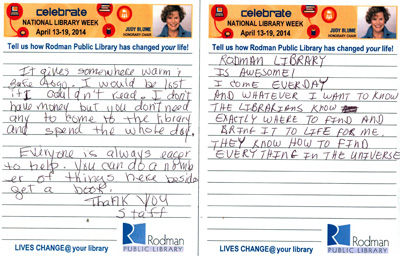 celebrate
NATIONAL LIBRARY WEEK
April 13-19, 2014
JUDY BLUME
HONORARY CHAIR
Tell us how Rodman Public Library has changed your life!
It gives somewhere warm &
safe to go. I would be lost
if I couldn't read. I don't
have money but you don't need
any to come to the library
and spend the whole day.
Everyone is always eager
to help. You can do a numb
er of things here beside
get a book.
Thank you
Staff
LIVES CHANGE@ your library
Rodman
PUBLIC LIBRARY
celebrate
NATIONAL LIBRARY WEEK
April 13-19, 2014
JUDY BLUME
HONORARY CHAIR
Tell us how Rodman Public Library has changed your life!
RODMAN LIBRARY
IS AWESOME!
I COME EVERDAY
AND WHATEVER I WANT TO KNOW
THE LIBRARIANS KNOW
EXACTLY WHERE TO FIND AND
BRING IT TO LIFE FOR ME.
THEY KNOW HOW TO FIND
EVERYTHING IN THE UNIVERSE
LIVES CHANGE@ your library
Rodman
PUBLIC LIBRARY